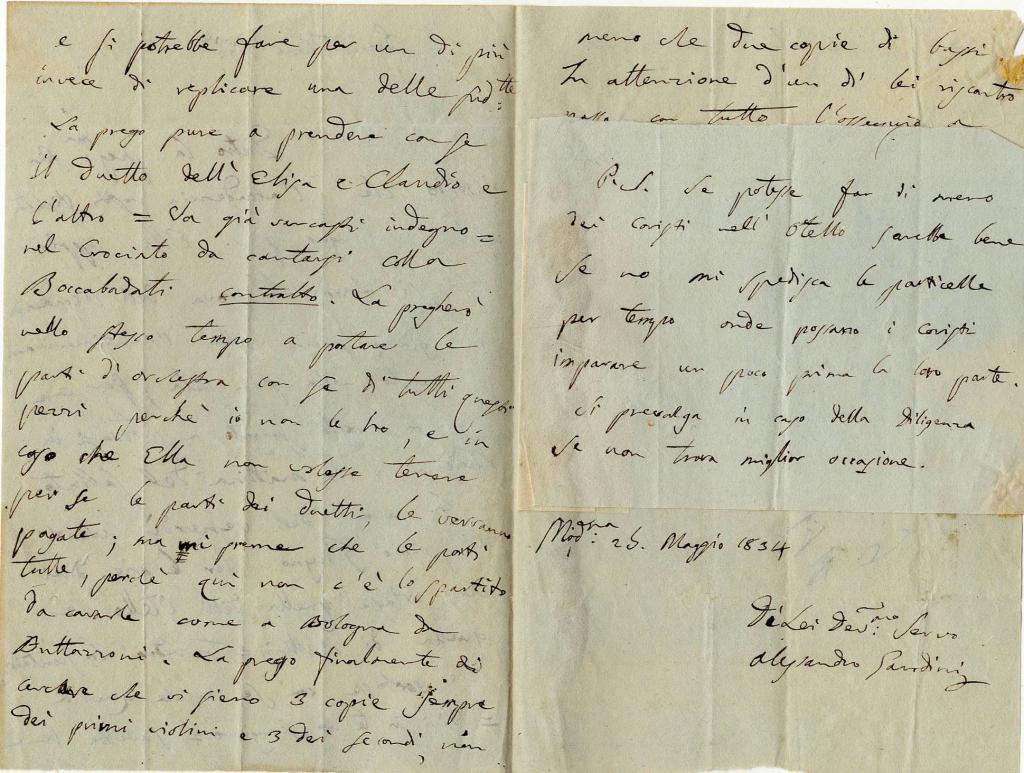 e si potrebbe fare per un di più
invece di replicare una delle sud:tte
La prego pure a prendere con se
il duetto dell'Elisa e Claudio e
l'altro = Va già varcasti indegno =
nel Crociato da cantarsi colla
Boccabadati contralto. La pregherò
nello stesso tempo a portare le
parti d'orchestra con se di tutti questi
pezzi perchè io non le ho, e in
caso che Ella non volesse tenere
per se le parti dei duetti, le verranno
pagate; ma mi preme che le porti
tutte, perchè qui non c'è lo spartito
da cavarle come a Bologna da
Buttazzoni. La prego finalmente di
che vi sieno 3 copie sempre
dei primi violini e 3 dei secondi, non
meno che due copie di bassi
In attenzione d'un di lei riscontro
passo con tutto l'ossequio a
P.S. Se potesse far di meno
dei coristi nell'Otello sarebbe bene
se no mi spedisca le particelle
per tempo onde possano i coristi
imparare un poco prima la loro parte.
Si prevalga in caso della diligenza
se non trova miglior occasione.
Mod:ena Maggio 1834
Di Lei Dev:mo Servo
Alessandro Gandini